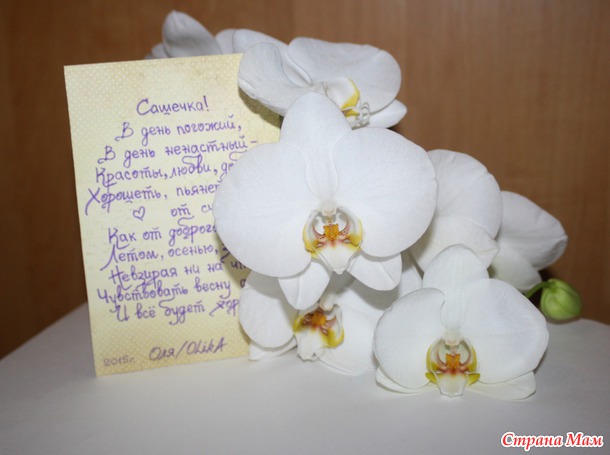 Сашечка!
В день погожий,
В день ненастный -
Красоты, любви,
Хорошеть,
♡ от
Как от
Летом, осенью,
Невзирая ни на
Чувствовать весну
И всё будет
2015г. Оля/OlikA
Страна Мам